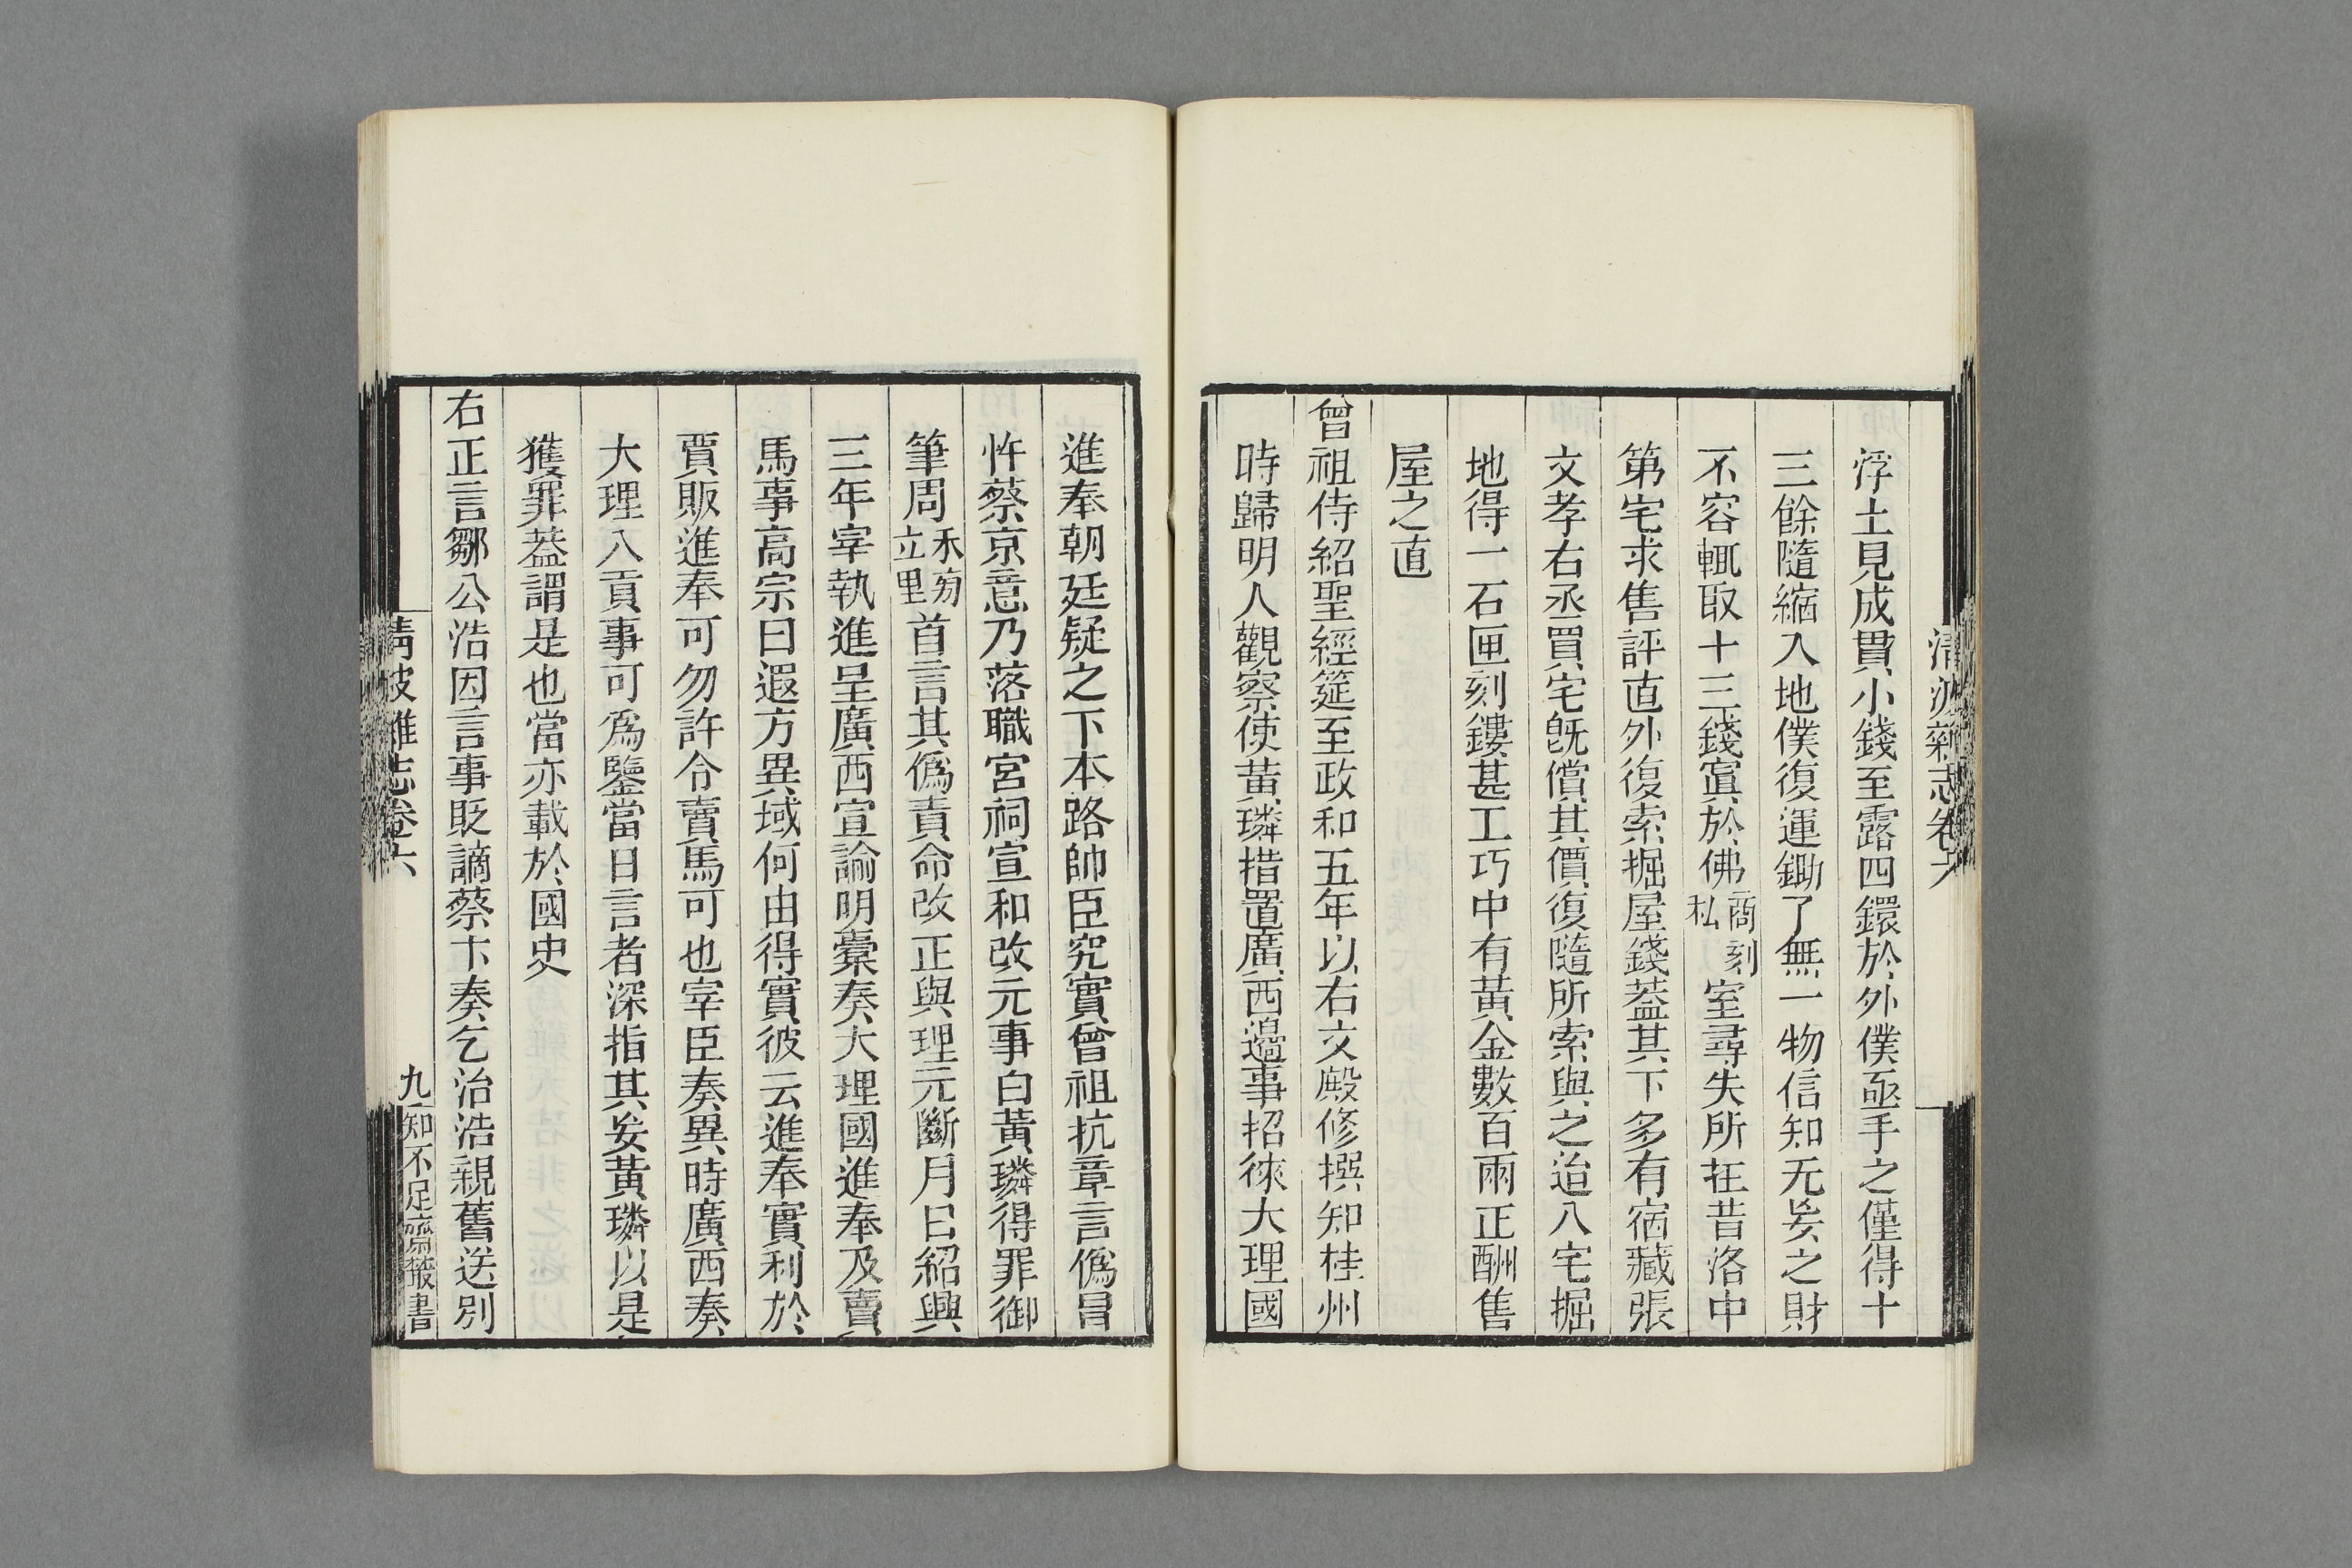 清波雜志卷六
浮土見成貫小錢至露四鐶於外僕亟手之僅得十
三餘隨縮入地僕復運鋤了無一物信知无妄之財
不容輒取十三錢寘於佛商刻私室尋失所在昔洛中
第宅求售評直外復索掘屋錢葢其下多有宿藏張
文孝右丞買宅旣償其價復隨所索與之迨入宅掘
地得一石匣刻鏤甚工巧中有黃金數百兩正酬售
屋之直
曾祖侍紹聖經筵至政和五年以右文殿修撰知桂州
時歸明人觀察使黃璘措置廣西邉事招徠大理國
進奉朝廷疑之下本路帥臣究實曾祖抗章言僞冒
忤蔡京意乃落職宮祠宣和改元事白黃璘得罪御
筆周禾旁立里首言其僞責命改正與理元斷月日紹興
三年宰執進呈廣西宣諭明橐奏大理國進奉及賣
馬事高宗曰遐方異域何由得實彼云進奉實利於
賈販進奉可勿許令賣馬可也宰臣奏異時廣西奏
大理入貢事可爲鑒當日言者深指其妄黃璘以是
獲罪葢謂是也當亦載於國史
右正言鄒公浩因言事貶謫蔡卞奏乞治浩親舊送別
清波雜志卷六
九
知不足齋叢書